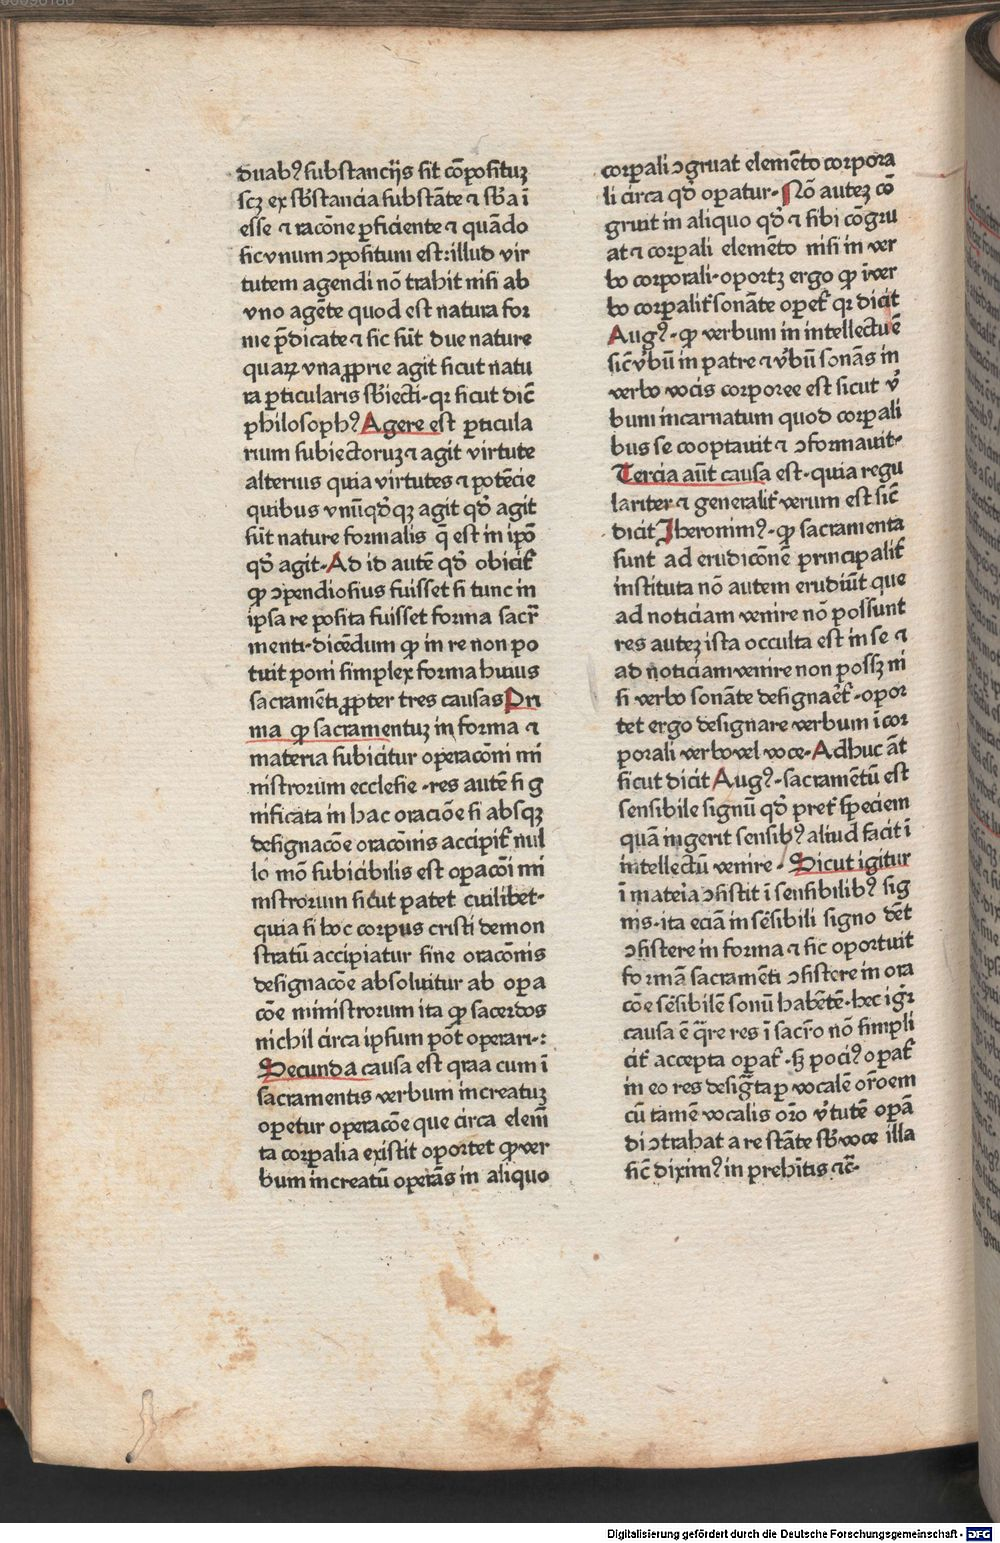 duabꝰ substancijs sit cōposituꝫ
scꝫ ex sb̄stancia substāte ⁊ sb̄a ī
esse ⁊ racōne ꝑficiente ⁊ quādo
sic vnum ↄpositum est: illud vir
tutem agendi nō trahit nisi ab
vno agēte quod est natura for
me p̄dicate ⁊ sic sūt due nature
quaꝝ vna ꝓprie agit sicut natu
ra ꝑticularis sb̄iecti· qr sicut dic̄
philosophꝰ Agere est ꝑticula
rium subiectoruꝫ ⁊ agit virtute
alterius quia virtutes ⁊ potēcie
quibus vnūqd̄qꝫ agit qd̄ agit
sūt nature formalis q̄ est in ip̄o
qd̄ agit· Ad id autē qd̄ obicit̄
ꝙ ↄpendiosius fuisset si tunc in
ipsa re posita fuisset forma sacr̄
menti· dicēdum ꝙ in re non po
tuit poni simplex forma huius
sacramēti ꝓpter tres causas Pri
ma ꝙ sacramentuꝫ in forma ⁊
materia subicitur operacōni mi
nistrorum ecclesie · res autē sig
nificata in hac oraciōe si absqꝫ
designacōe oracōnis accipit̄ nul
lo mō subicibilis est oꝑacōi mi
nistrorum sicut patet cuilibet·
quia si hoc corpus cristi demon
stratū accipiatur sine oracōnis
designacōe absoluitur ab oꝑa
cōe ministrorum ita ꝙ sacerdos
nichil circa ipsum pōt operari·:
Secunda causa est qraa cum ī
sacramentis verbum increatuꝫ
oꝑetur operacōe que circa elem̄
ta corꝑalia existit oportet ꝙ ver
bum increatū operās in aliquo
corꝑali ↄgruat elemēto corpora
li circa qd̄ oꝑatur· Nō auteꝫ cō
gruit in aliquo qd̄ ⁊ sibi cōgru
at ⁊ corꝑali elemēto nisi in ver
bo corporali· oportꝫ ergo ꝙ ī ver
bo corꝑalit̄ sonāte oꝑet̄ qr dicit
Augꝰ· ꝙ verbum in intellectu ē
sic̄ v̄bū in patre ⁊ v̄bū sonās in
verbo vocis corporee est sicut v̄
bum incarnatum quod corꝑali
bus se cooptauit ⁊ ↄformauit·
Tercia aūt causa est· quia regu
lariter ⁊ generalit̄ verum est sic̄
dicit Jheronimꝰ· ꝙ sacramenta
sunt ad erudicōnē principalit̄
instituta nō autem erudiūt que
ad noticiam venire nō possunt
res auteꝫ ista occulta est in se ⁊
ad noticiam venire non possꝫ ni
si verbo sonāte designaēt̄· opor
tet ergo designare verbum ī cor
porali verbo vel voce· Adhuc āt
sicut dicit Augꝰ· sacramētū est
sensibile signū qd̄ pret̄ speciem
quā ingerit sensibꝰ aliud facit ī
intellectū venire· Sicut igitur
ī mateīa ↄsistit ī sensibilibꝰ sig
nis· ita eciā in sēsibili signo dēt
ↄsistere in forma ⁊ sic oportuit
formā sacramēti ↄsistere in ora
cōe sēsibilē sonū habētē· hec igr̄
causa ē q̄re res ī sacr̄o nō simpli
cit̄ accepta oꝑat̄· sꝫ pociꝰ oꝑat̄
in eo res design̄ta ꝑ vocalē or̄oem
cū tamē vocalis or̄o v̄tutē oꝑā
di ↄtrahat a re stāte sb̄ voce illa
sic̄ diximꝰ in prehītis ⁊c̄·
Digitalisierung gefördert durch die Deutsche Forschungsgemeinschaft - DFG